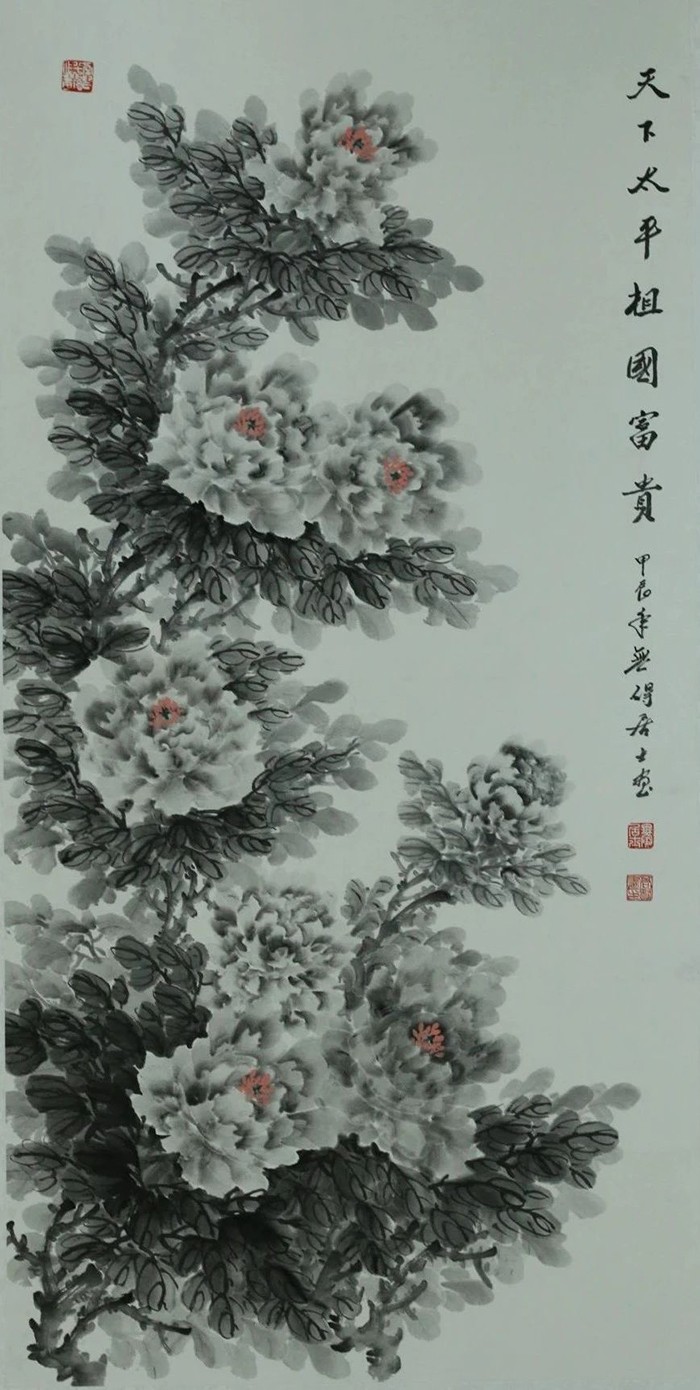 天下太平祖國富貴
甲辰年無得居士畫